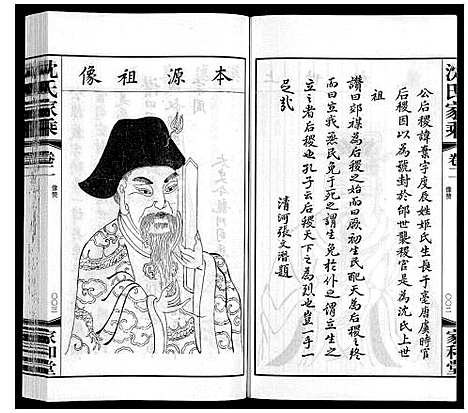 沈氏家乘
卷二
像贊
〇〇二
家和堂
公后稷諱棄字度辰姓姬氏生長于亳唐虞時官
后稷因以為號封於邰世襲稷官是為沈氏上世
祖
讚曰郊禖為后稷之始而曰厥初生民配天為后稷之終
而曰立我烝民免于死之謂生免於外之謂立生之
立之者后稷也孔子云后稷天下之為烈也豈一手一
足哉
清河張文潛題
本源祖像
沈氏家乘
卷二
像贊
〇〇三
家和堂